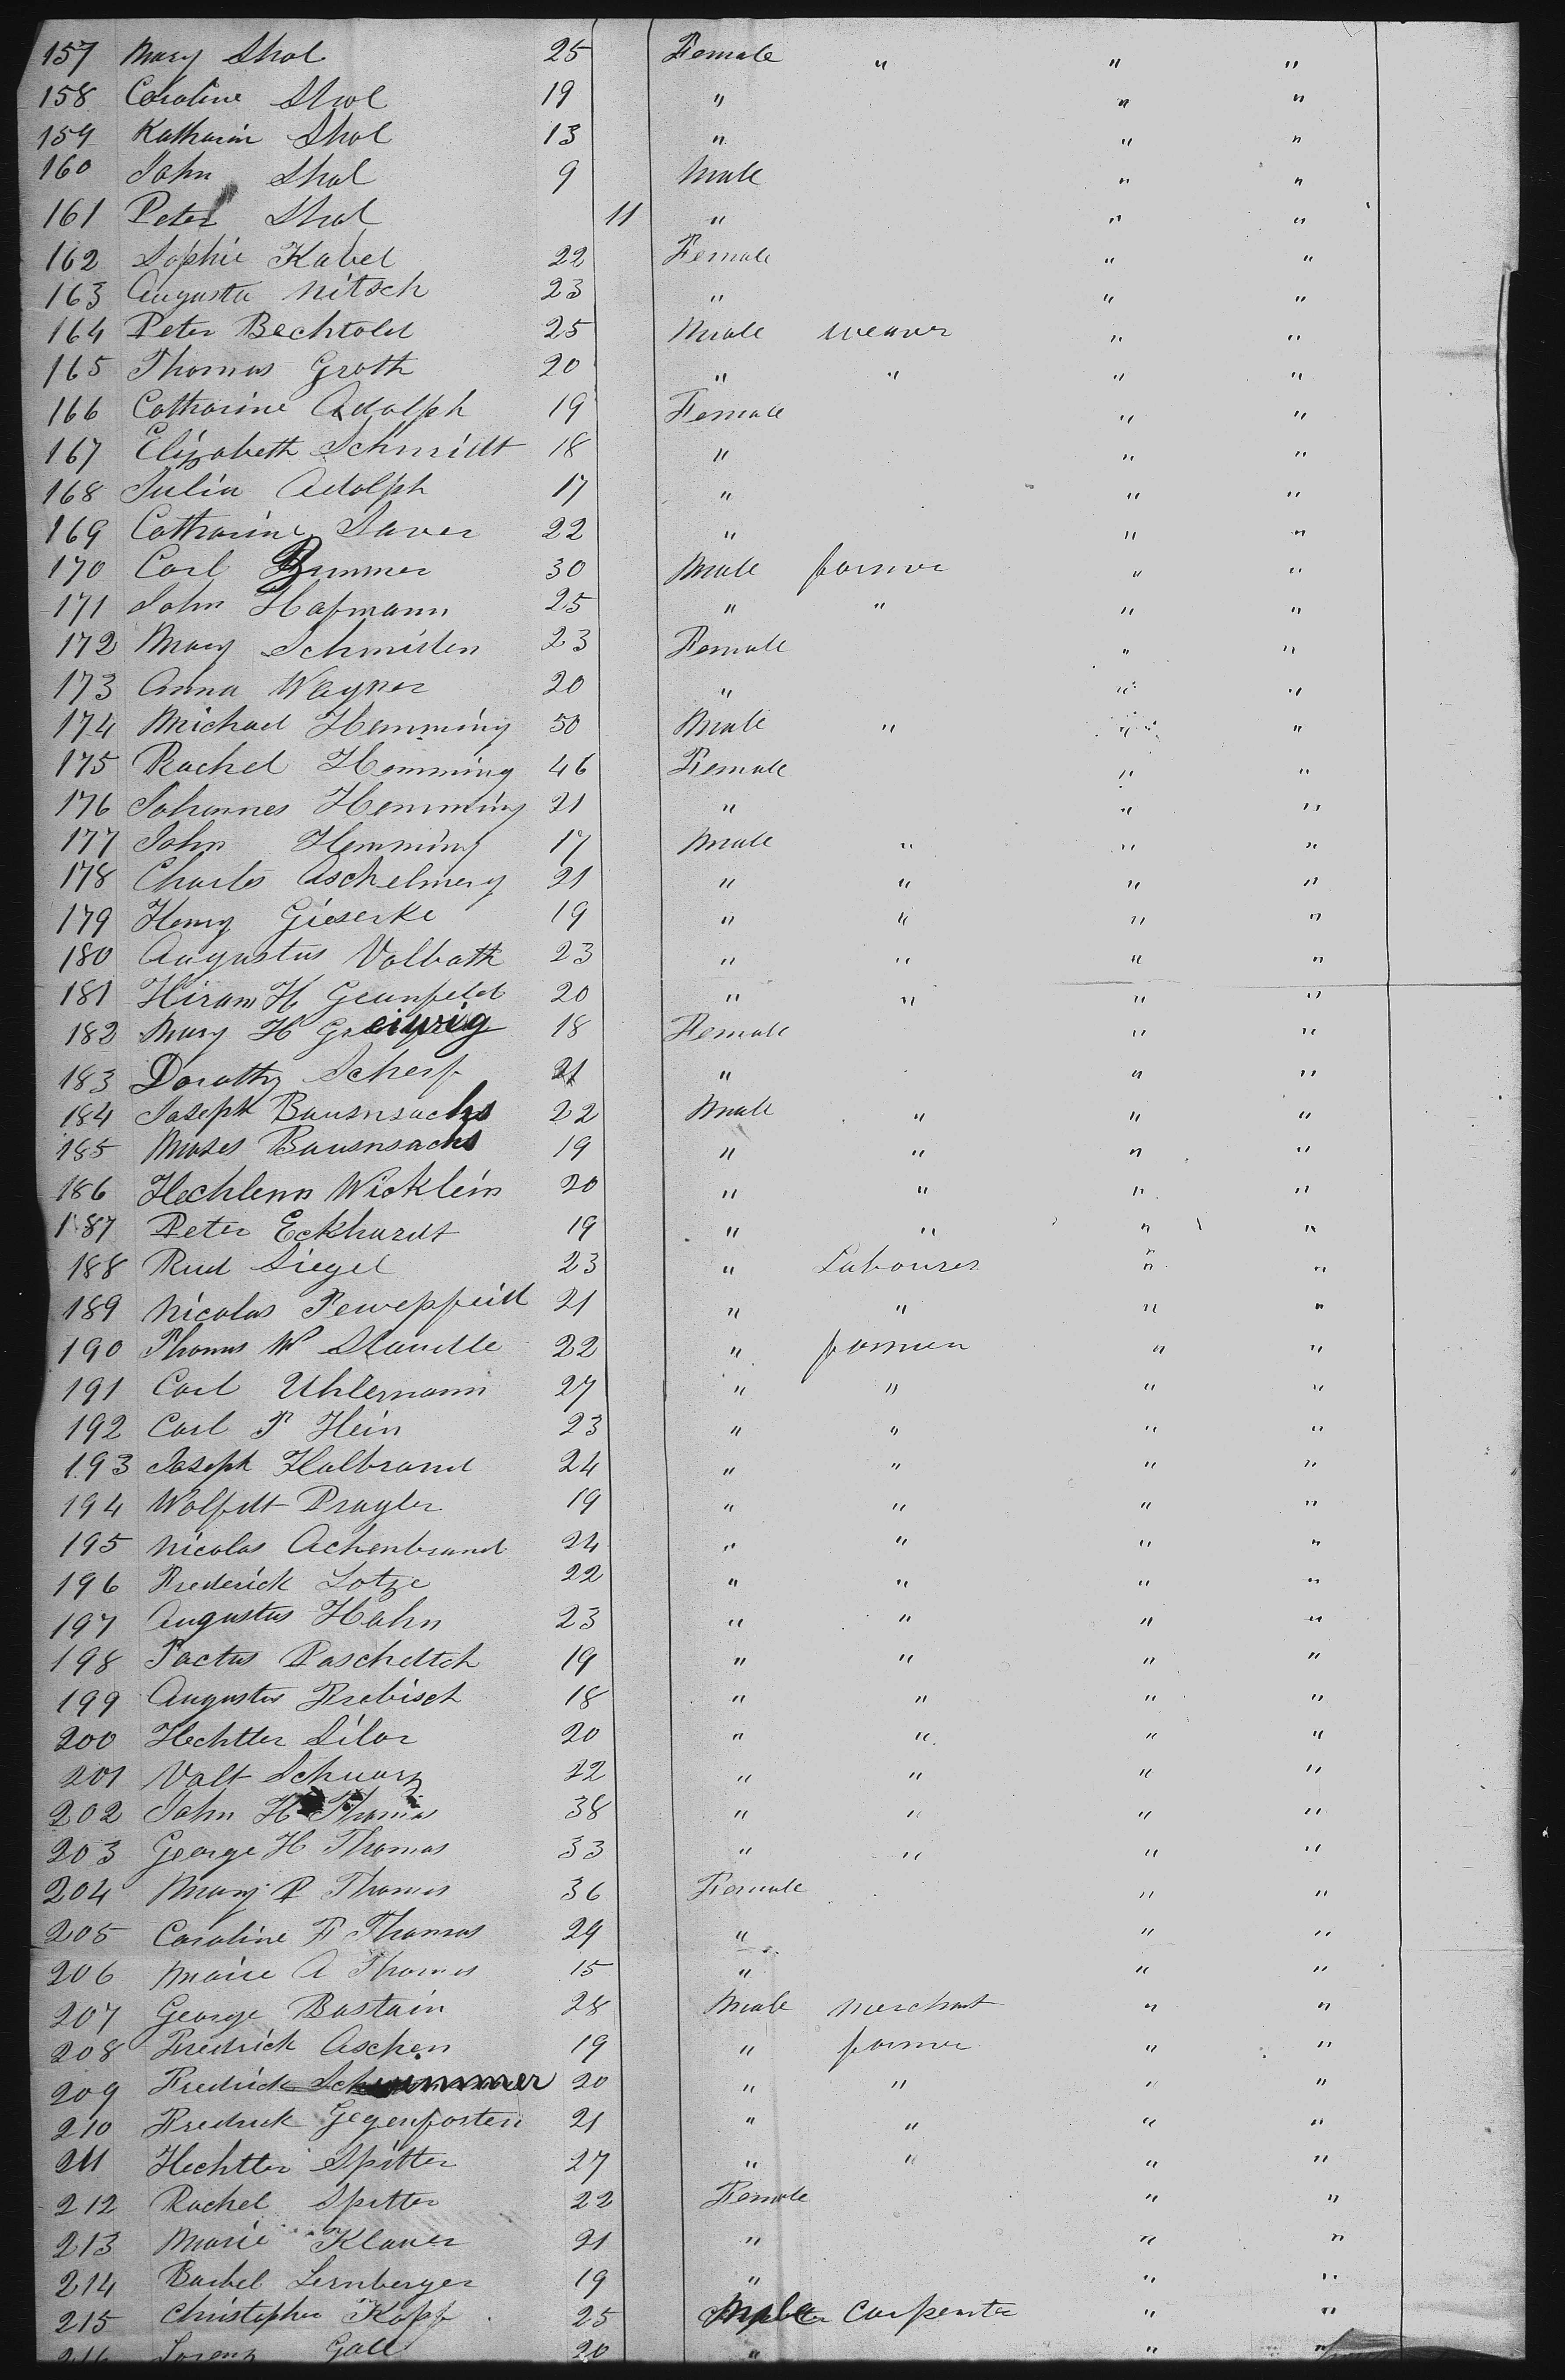 157 Mary Shol 25 Female " " "
158 Caroline Shol 19 " " "
159 Katharin Shol 13 " " "
160 John Shol 9 Male " "
161 Peter Shol 11 " " "
162 Sophie Kabel 22 Female " "
163 Augusta Nitsch 23 " " "
164 Peter Bechtold 25 Male weaver " "
165 Thomas Groth 20 " " " "
166 Catharine Adolph 19 Female " "
167 Elizabeth Schmidt 18 " " "
168 Julia Adolph 17 " " "
169 Catharine Saver 22 " " "
170 Carl Brummer 30 Male farmer " "
171 John Hafmann 25 " " " "
172 Mary Schmiden 23 Female " "
173 Anna Wagner 20 " " "
174 Michael Hemming 50 Male " " "
175 Rachel Hemming 46 Female " "
176 Johannes Hemming 21 " " "
177 John Hemming 17 Male " " "
178 Charles Aschelmery 21 " " " "
179 Henry Gieserke 19 " " " "
180 Augustus Volbath 23 " " " "
181 Hiram H Geunfeld 20 " " " "
182 Mary H 18 Female " "
183 Dorothy Scherf 21 " " "
184 Joseph Bausnsachs 22 Male " " "
185 Moses Bausnsachs 19 " " " "
186 Hechlenn Wicklein 20 " " " "
187 Peter Eckhardt 19 " " " "
188 Rud Siegel 23 " Labourer " "
189 Nicolas 21 " " " "
190 Thomas W Staudte 22 " farmer " "
191 Carl Uhlemann 27 " " " "
192 Carl F Hein 23 " " " "
193 Joseph Halbrand 24 " " " "
194 Wolfdt Pragler 19 " " " "
195 Nicolas Achenbrand 24 " " " "
196 Frederick Lotze 22 " " " "
197 Augustus Hahn 23 " " " "
198 Factus Paschedtch 19 " " " "
199 Augustus Frebisch 18 " " " "
200 Hechtter Silor 20 " " " "
201 Valt Schwarz 22 " " " "
202 John H Thomas 38 " " " "
203 George H Thomas 33 " " " "
204 Mary P Thomas 36 Female " "
205 Caroline F Thomas 29 " " "
206 Marie A Thomas 15 " " "
207 George Bastain 28 Male merchant " "
208 Fredrick Aschen 19 " farmer " "
209 Fredrick 20 " " " "
210 Fredrick Gegenforten 21 " " " "
211 Hechtter Spitter 27 " " " "
212 Rachel Spitter 22 Female " "
213 Marie Klauer 21 " " "
214 Barbel Lernberger 19 " " "
215 Christopher Kopf 25 Male Carpenter " "
216 Lorenz Gall 20 " " "